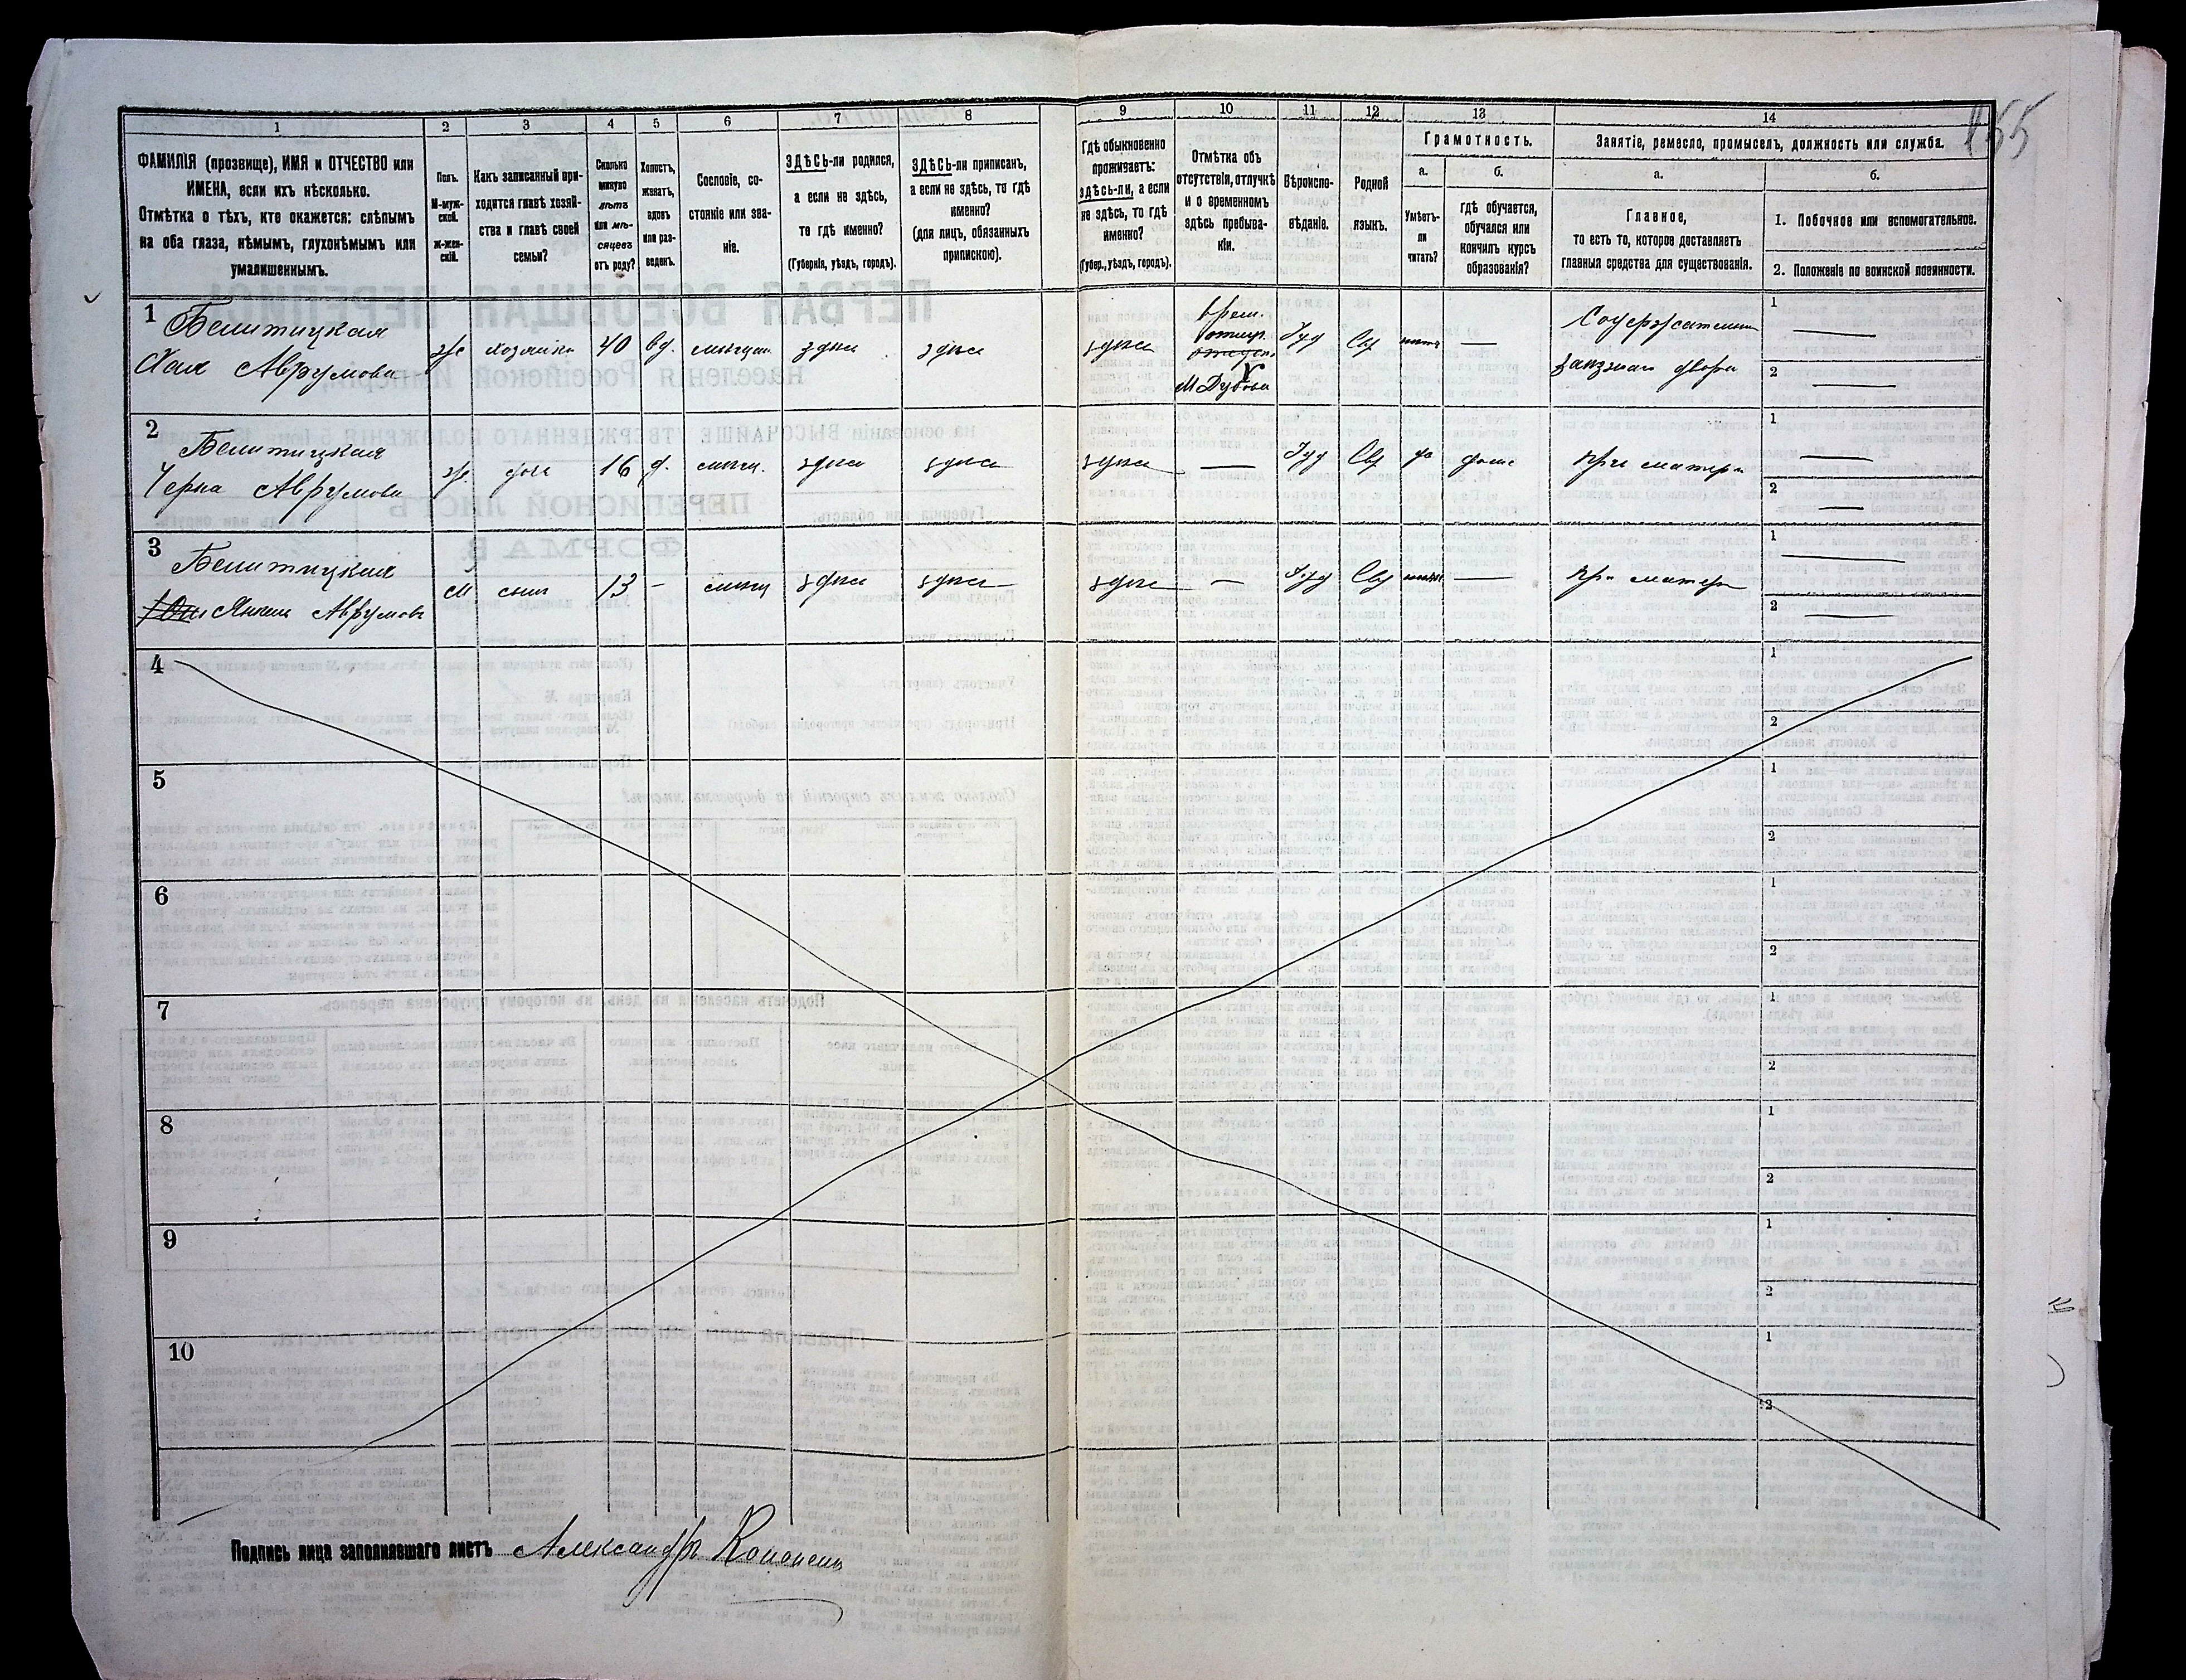 155
1
2
3
4
5
6
7
8
9
10
11
12
13
14
ФАМИЛІЯ (прозвище), ИМЯ и ОТЧЕСТВО или
ИМЕНА, если ихъ нѣсколько.
Отмѣтка о тѣхъ, кто окажется: слѣпымъ
на оба глаза, нѣмымъ, глухонѣмымъ или
умалишеннымъ.
Полъ.
М-муж-
ской.
ж-жен-
скій.
Какъ записанный при-
ходится главѣ хозяй-
ства и главѣ своей
семьи?
Сколько
минуло
лѣтъ
или мѣ-
сяцевъ
отъ роду?
Холостъ,
женатъ,
вдовъ
или раз-
веденъ.
Сословіе, со-
стояніе или зва-
ніе.
ЗДѢСЬ-ли родился,
а если не здѣсь,
то гдѣ именно?
(Губернія, уѣздъ, городъ).
ЗДѢСЬ-ли приписанъ,
а если не здѣсь, то гдѣ
именно?
(для лицъ, обязанныхъ
припискою).
Гдѣ обыкновенно
проживаетъ:
здѣсь-ли, а если
не здѣсь, то гдѣ
именно?
(Губер., уѣздъ, городъ).
Отмѣтка объ
отсутствіи, отлучкѣ
и о временномъ
здѣсь пребыва-
ніи.
Вѣроиспо-
вѣданіе.
Родной
языкъ.
Грамотность.
а.
б.
Умѣетъ-
ли
читать?
гдѣ обучается,
обучался или
кончилъ курсъ
образованія?
Занятіе, ремесло, промыселъ, должность или служба.
а.
б.
Главное,
то есть то, которое доставляетъ
главныя средства для существованія.
1. Побочное или вспомогательное.
2. Положеніе по воинской повинности.
1 Белитицкая
Хая Аврумова
ж хозяйка 40 вд. мѣщан здѣсь здѣсь здѣсь
врем.
Іуд Ев нѣтъ —
заѣзжаго двора
1 —
2 —
2 Белитицкая
Черна Аврумова
ж дочь 16 д. мѣщ. здѣсь здѣсь здѣсь — Іуд Ев да дома при матери
1 —
2 —
3 Белитицкая
Аврумовъ
м сынъ 13 - мѣщ здѣсь здѣсь здѣсь — Іуд Ев нѣтъ — при матери
1 —
2 —
4
1
2
5
1
2
6
1
2
7
1
2
8
1
2
9
1
2
10
1
2
Подпись лица заполнявшаго листъ Александръ